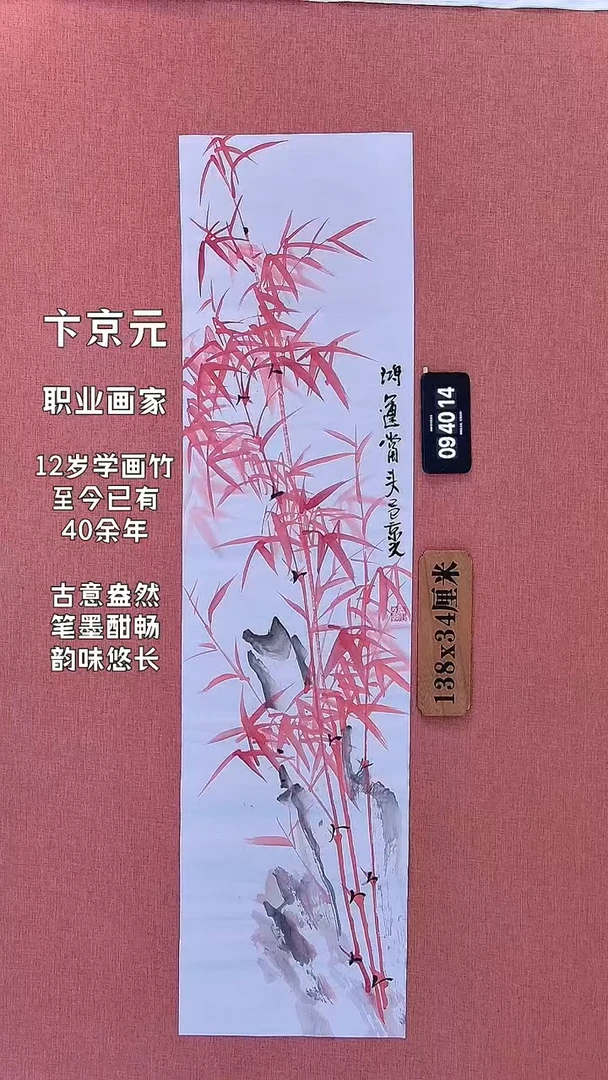 卞京元
职业画家
12岁学画竹
至今已有
40余年
古意盎然
笔墨酣畅
韵味悠长
鸿運當头 京元
09 40 14
138x34厘米